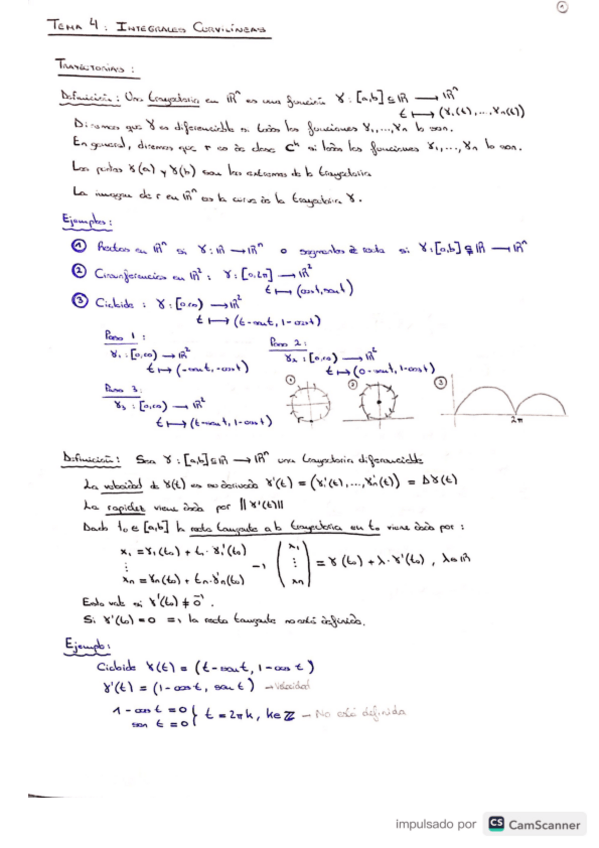 1
TEMA 4: INTEGRALES CURVILÍNEAS
TRAYECTORIAS:
Definición: Una trayectoria en ℝⁿ es una función γ: [a,b] ⊆ ℝ → ℝⁿ
t ↦ (γ₁(t),...,γₙ(t))
Diremos que γ es diferenciable si todas las funciones γ₁,...,γₙ lo son.
En general, diremos que γ es de clase Cᵏ si todas las funciones γ₁,...,γₙ lo son.
Los puntos γ(a) y γ(b) son los extremos de la trayectoria
La imagen de γ en ℝⁿ es la curva de la trayectoria γ.
Ejemplos:
① Rectas en ℝⁿ si γ: ℝ → ℝⁿ o segmentos de recta si γ: [a,b] ⊊ ℝ → ℝⁿ
② Circunferencias en ℝ²: γ: [0,2π] → ℝ²
t ↦ (cost, sent)
③ Cicloide: γ: [0,∞) → ℝ²
t ↦ (t-sent, 1-cost)
Paso 1:
γ₁: [0,∞) → ℝ²
t ↦ (-sent, -cost)
Paso 2:
γ₂: [0,∞) → ℝ²
t ↦ (0-sent, 1-cost)
Paso 3:
γ₃: [0,∞) → ℝ²
t ↦ (t-sent, 1-cost)
① ② ③
2π
Definición: Sea γ: [a,b] ⊆ ℝ → ℝⁿ una trayectoria diferenciable
La velocidad de γ(t) es su derivada γ'(t) = (γ₁'(t),...,γₙ'(t)) = Dγ(t)
La rapidez viene dada por ||γ'(t)||
Dado t₀ ∈ [a,b] la recta tangente a la trayectoria en t₀ viene dada por:
x₁ = γ₁(t₀) + t₁·γ₁'(t₀)
⋮
xₙ = γₙ(t₀) + tₙ·γₙ'(t₀)
→ (x₁ ⋮ xₙ) = γ(t₀) + λ·γ'(t₀), λ∈ℝ
Esto vale si γ'(t₀) ≠ 0⃗.
Si γ'(t₀) = 0 ⇒ la recta tangente no está definida.
Ejemplo:
Cicloide γ(t) = (t-sent, 1-cos t)
γ'(t) = (1-cost, sen t) → velocidad
1-cost = 0
sen t = 0 } t = 2πk, k∈ℤ → No está definida
impulsado por CS CamScanner